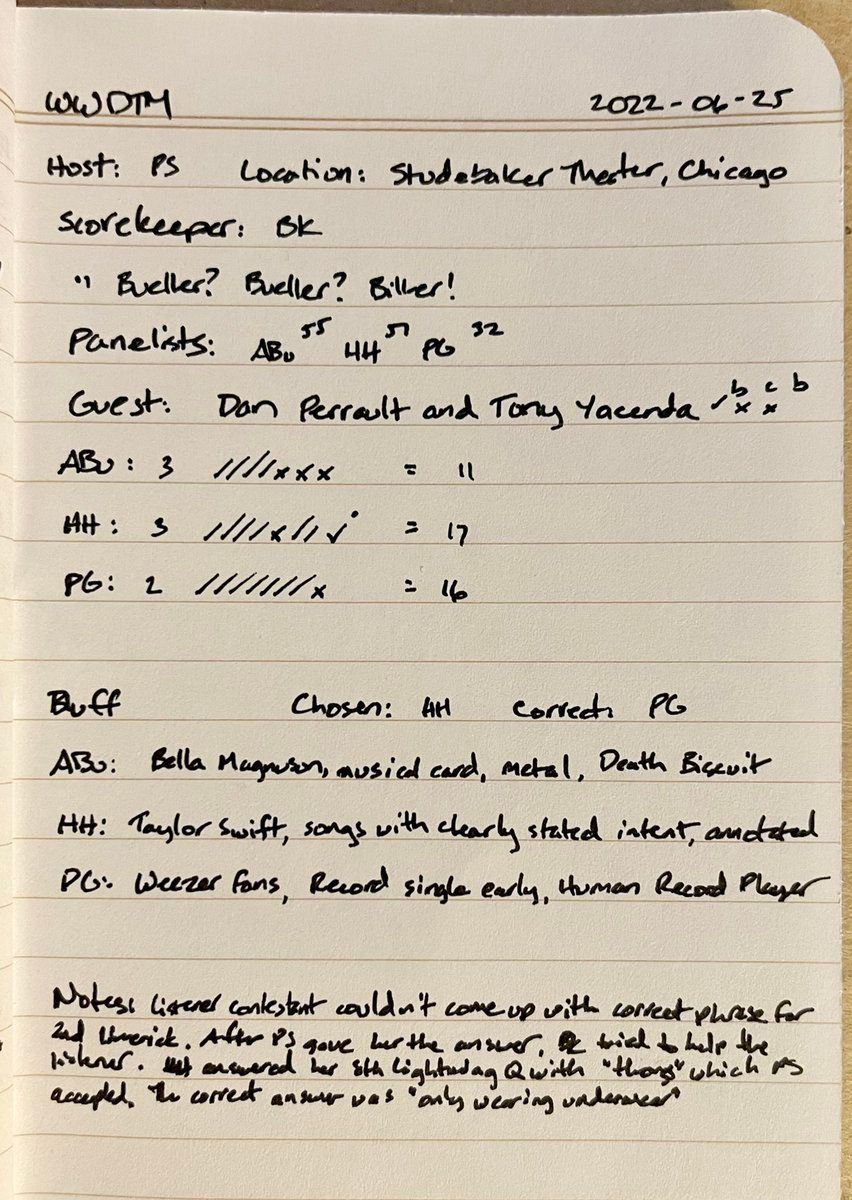 WWDTM 2022-06-25
Host: PS Location: Studebaker Theater, Chicago
Scorekeeper: BK
" Bueller? Bueller? Biller!
Panelists: ABu 55 HH 51 PG 32
Guest: Dan Perrault and Tony Yacenda ✓ b x c x b
ABu: 3 ////xxx = 11
HH: 3 ////x//✓· = 17
PG: 2 ///////x = 16
Bluff Chosen: HH Correct: PG
ABu: Bella Magnuson, musical card, metal, Death Biscuit
HH: Taylor Swift, songs with clearly stated intent, annotated
PG: Weezer fans, Record single early, Human Record Player
Notes: Listener contestant couldn't come up with correct phrase for
2nd limerick. After PS gave her the answer, tried to help the
listener. HH answered her 8th Lightning Q with "thong" which PS
accepted. The correct answer was "only wearing underwear"